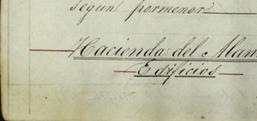 segun pormenor
Hacienda del Alam
Edificios